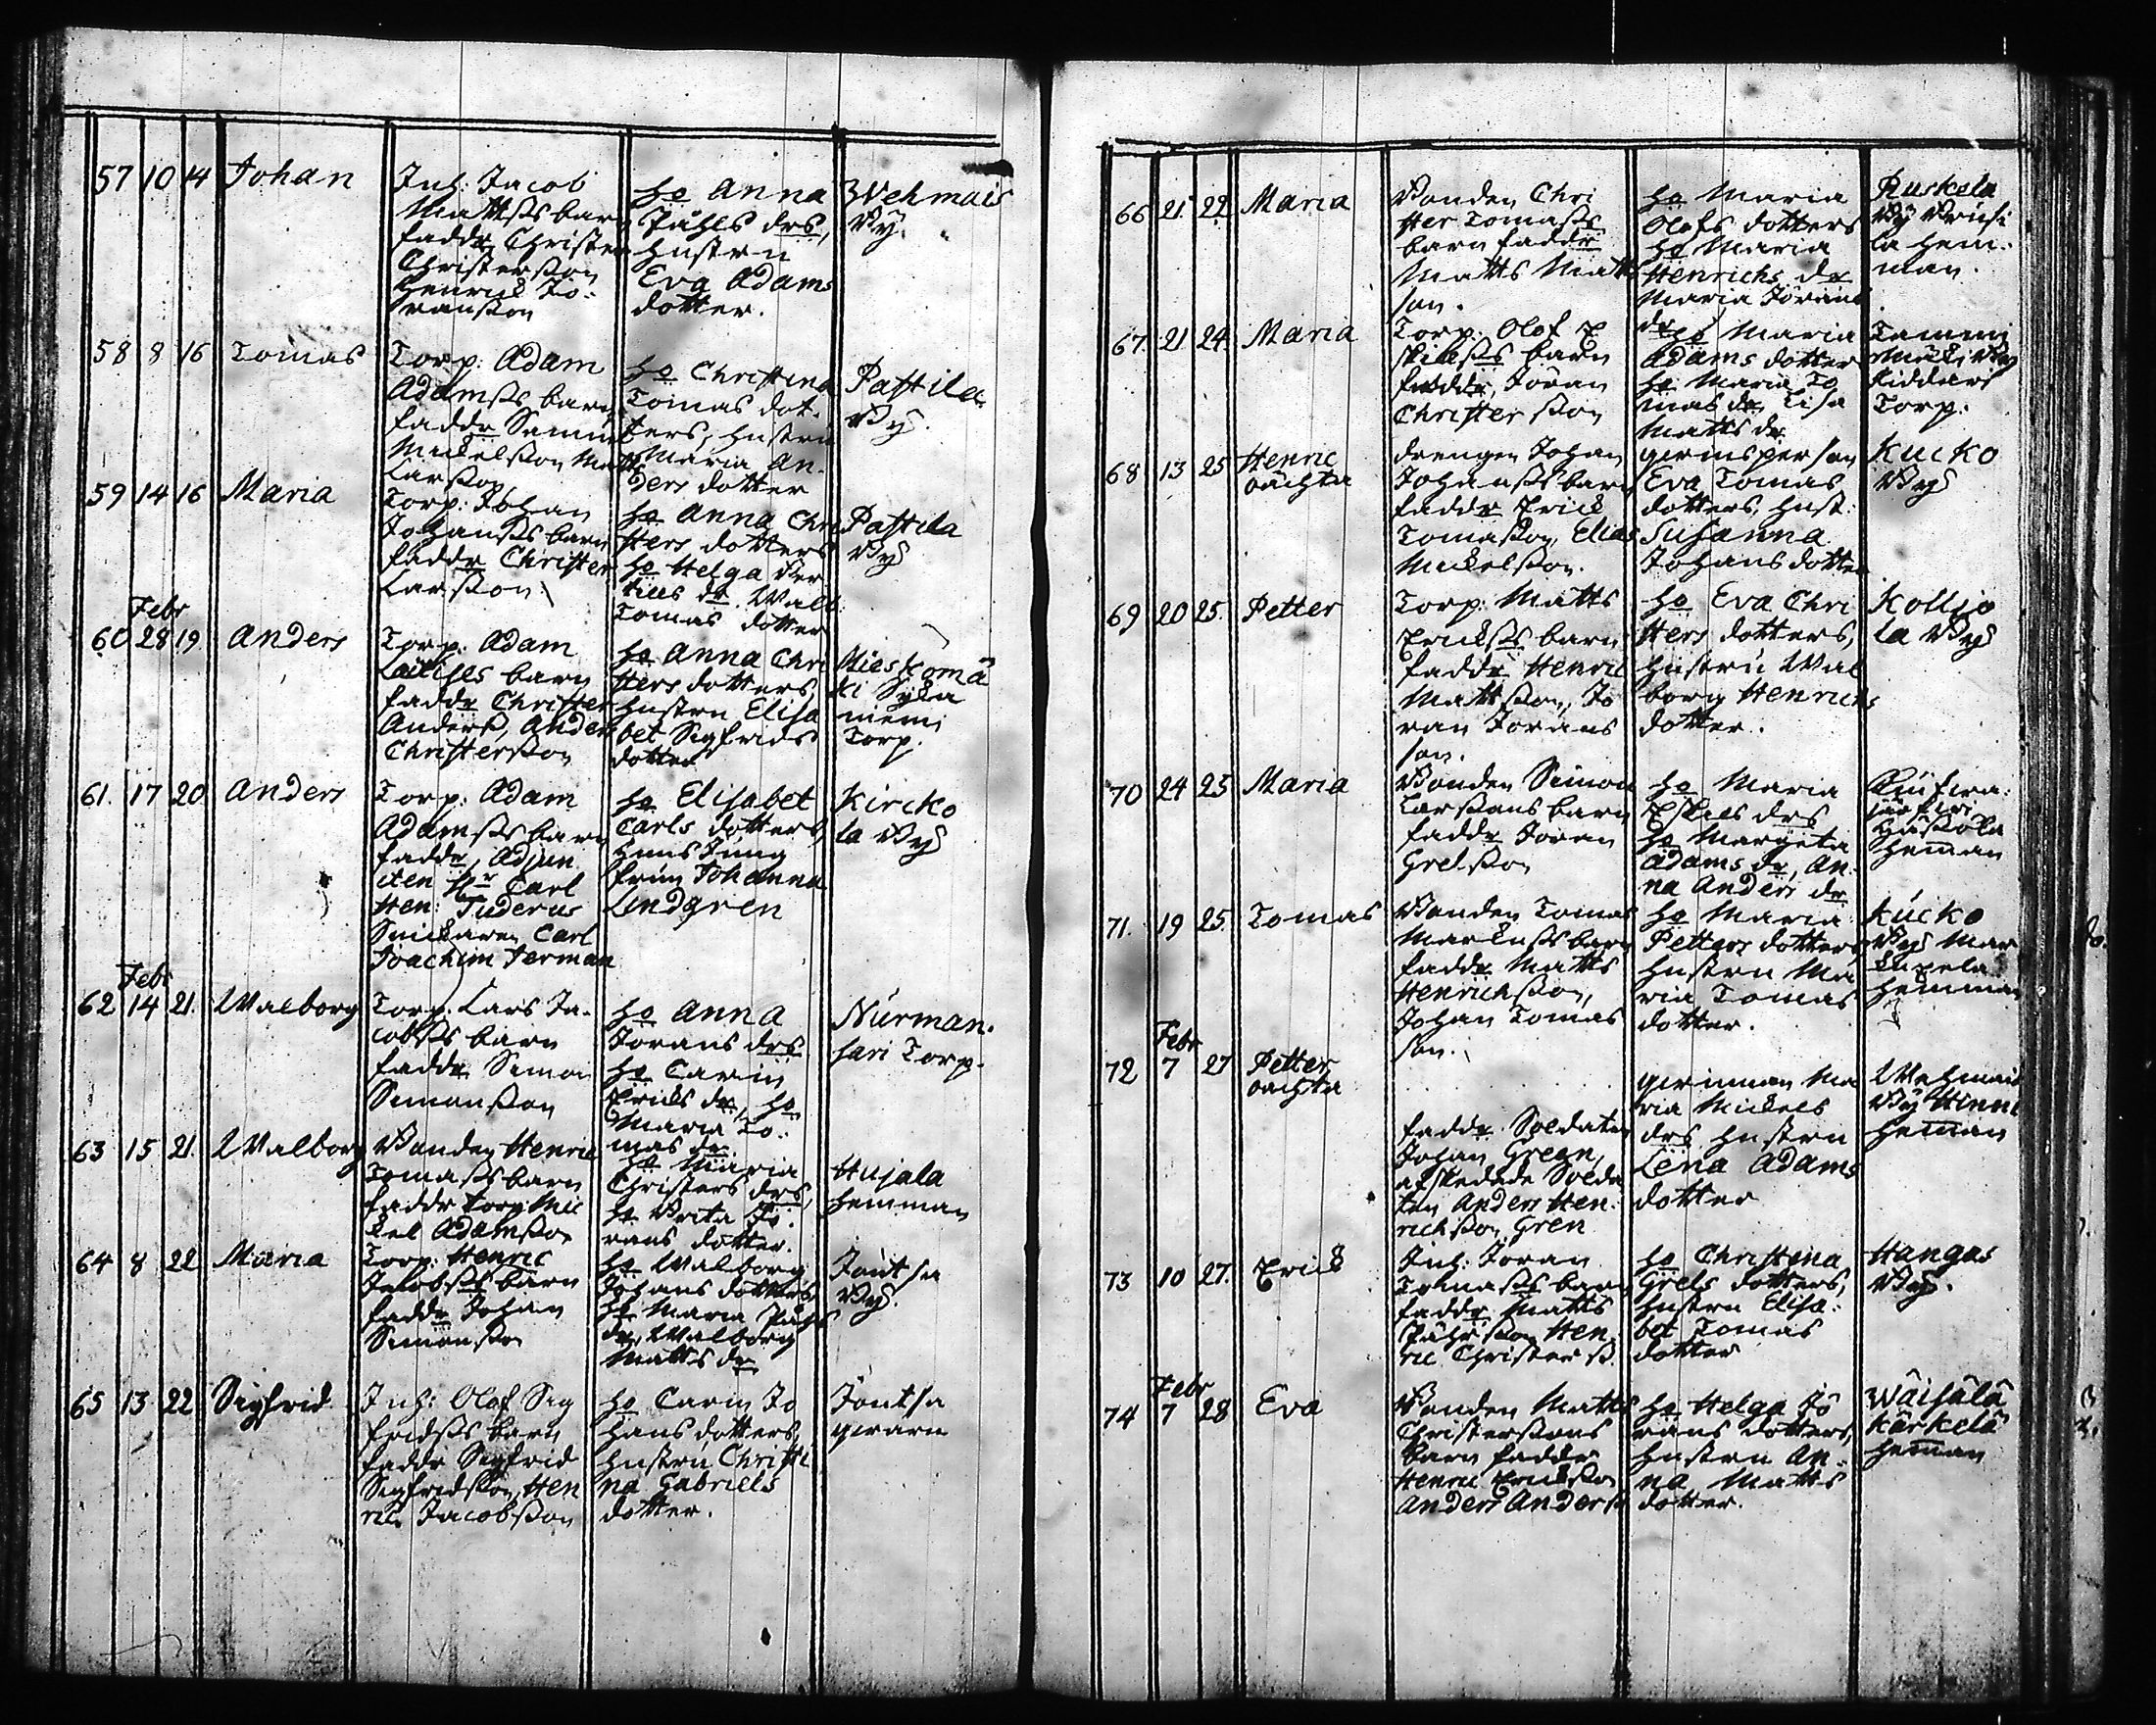 57 10 14 Johan
Inh: Jacob
Mattsſs barn
faddr Christer
Christersson
Henrick Jö-
ransson
Ho Anna
Påhls drs,
hustru
Eva Adams
dotter.
Wehmais
By.
58 8 16 Tomas
Torp: Adam
Adamsſs barn
faddr Simon
Mickelsson Matts
Larsson
Ho Christina
Tomas dot-
ters, hustru
Maria An-
ders dotter
Pastila
By.
59 14 16 Maria
Torp: Johan
Johansſs barn
faddr Christer
Larsson
Ho Anna Chri
sters dotters
Ho Helga Ber
tills dr. Walb
Tomas dotter
Pastila
By
Febr
60 28 19. Anders
Torp: Adam
barn
faddr Christer
Anderss, Anders
Christersson
Ho Anna Chri
sters dotters,
hustru Elisa
bet Sigfrids
dotter
Mieskomä
ki Syka
niemi
Torp.
61. 17 20 Anders
Torp: Adam
Adamsſs barn
faddr, Adjun
cten Hr Carl
Hen: Tuderus
Snickaren Carl
Joachim Jerman
Ho Elisabet
Carls dotters,
Hans Jung
frun Johanna
Lindgren
Kircko
la By
Febr
62 14 21. Walborg
Torp. Lars Ja-
cobsſs barn
faddr Simon
Simonsson
Ho Anna
Jörans drs
Ho Carin
Ericks dr, Ho
Maria To-
mas dr
Nurman.
sari Torp.
63 15 21. Walborg
Bonden Henric
Tomasſs barn
faddr torp: Mic
kel Adamsson
Ho Maria
Christers drs,
Ho Brita Jö-
rans dotter.
Hujala
Hemman
64 8 22 Maria
Torp: Henric
Jacobsſs barn
faddr Johan
Simonsson
Ho Walborg
Johans dotters,
Ho Maria Påhls
dr, Walborg
Matts dr
Joutsa
By.
65 13 22 Sigfrid
Inh: Olof Sig
fridsſs barn
faddr Sigfrid
Sigfridsson, Hen
ric Jacobsson
Ho Carin Jo
hans dotters,
hustru Christi
na Gabriels
dotter.
Joutsa
66 21. 22 Maria
Bonden Chri
ster Tomasſs
barn faddr
Matts Matts
son.
Ho Maria
Olofs dotters
Ho Maria
Henrichs dr
Maria Jörans
dr
Ruskela
By
la Hem-
man.
67. 21 24. Maria
Torp: Olof E
skilsſs barn
faddr, Jöran
Christersson
Ho Maria
Adams dotter
Ho Maria To
mas dr Lisa
Matts dr
Tammi
mäki By
Torp.
68 13 25 Henric
oächta
drengen Johan
Johansſs barn
faddr Erick
Tomasson, Elias
Mickelsson.
qvinsperson
Eva Tomas
dotters, hust:
Susanna
Johans dotter
Kucko
By
69 20 25. Petter
Torp: Matts
Ericksſs barn
faddr Henric
Mattsson, Jö
ran Jörans
son.
Ho Eva Chri
sters dotters,
hustru Wal
borg Henrichs
dotter.
Kollio
la By
70 24 25 Maria
Bonden Simon
Larssons barn
faddr Jöran
Grelsson
Ho Maria
Eskils drs
Ho Margeta
Adams dr, An-
na Anders dr
Heman
71. 19 25. Tomas
Bonden Tomas
Marcusſs barn
faddr Matts
Henrichsson,
Johan Tomas
son.
Ho Maria
Petters dotters,
hustru Ma
ria Tomas
dotter.
Kucko
By Mar
kupela
Hemman
Febr
72 7 27 Petter
oächta
faddr Soldaten
Johan Gregn,
afskedade Solda
ten Anders Hen-
richsson Gren
qvinnan Ma
ria Mickels
drs hustru
Lena Adams
dotter
Wehmais
By Hinni
Heman
73 10 27. Erick
Inh: Jöran
Tomasſs barn
faddr Matts
Påhrsson Hen
ric Christerss.
Ho Christina
Grels dotters,
hustru Elisa-
bet Tomas
dotter
Hangas
By.
Febr
74 7 28 Eva
Bonden Matts
Christerssons
barn faddr
Henric Ericksson
Anders Anderss
Ho Helga Jö
rans dotters,
hustru An-
na Matts
dotter.
Wäisälä
Kärkelä
Heman